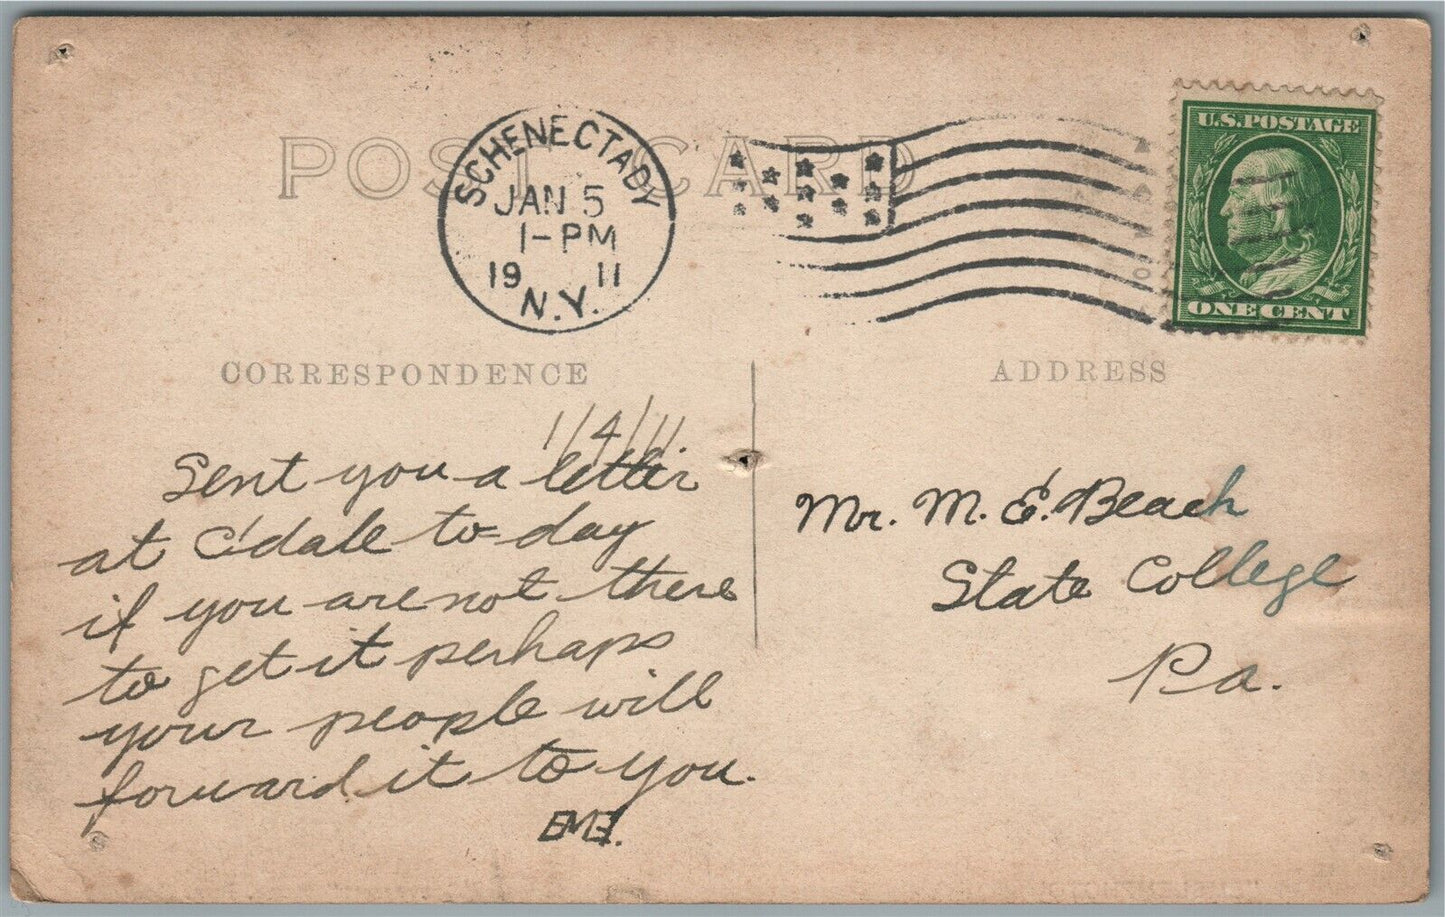 POST CARD
SCHENECTADY
JAN 5
1-PM
19 11
N.Y.
U.S. POSTAGE
ONE CENT
CORRESPONDENCE
ADDRESS
1/4/11
Sent you a letter
at C'dale to-day
if you are not there
to get it perhaps
your people will
forward it to you.
Mr. M. E. Beach
State College
Pa.